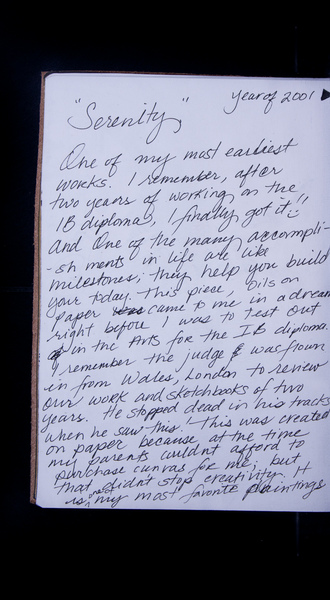 year of 2001
"Serenity,"
One of my most earliest
works. I remember, after
two years of working on the
IB diploma, I finally got it!!
and One of the many accompli-
-sh ments in life are like
milestones; they help you build
your today. This piece, Oils on
paper came to me in a dream
right before I was to test out
in the Arts for the IB diploma.
I remember the judge was flown
in from Wales, London to review
our work and sketchbooks of two
years. He stopped dead in his tracks
when he saw this! This was created
on paper because at the time
my parents couldnt afford to
purchase canvas for me; but
that didn't stop creativity. It
is, my most favorite paintings